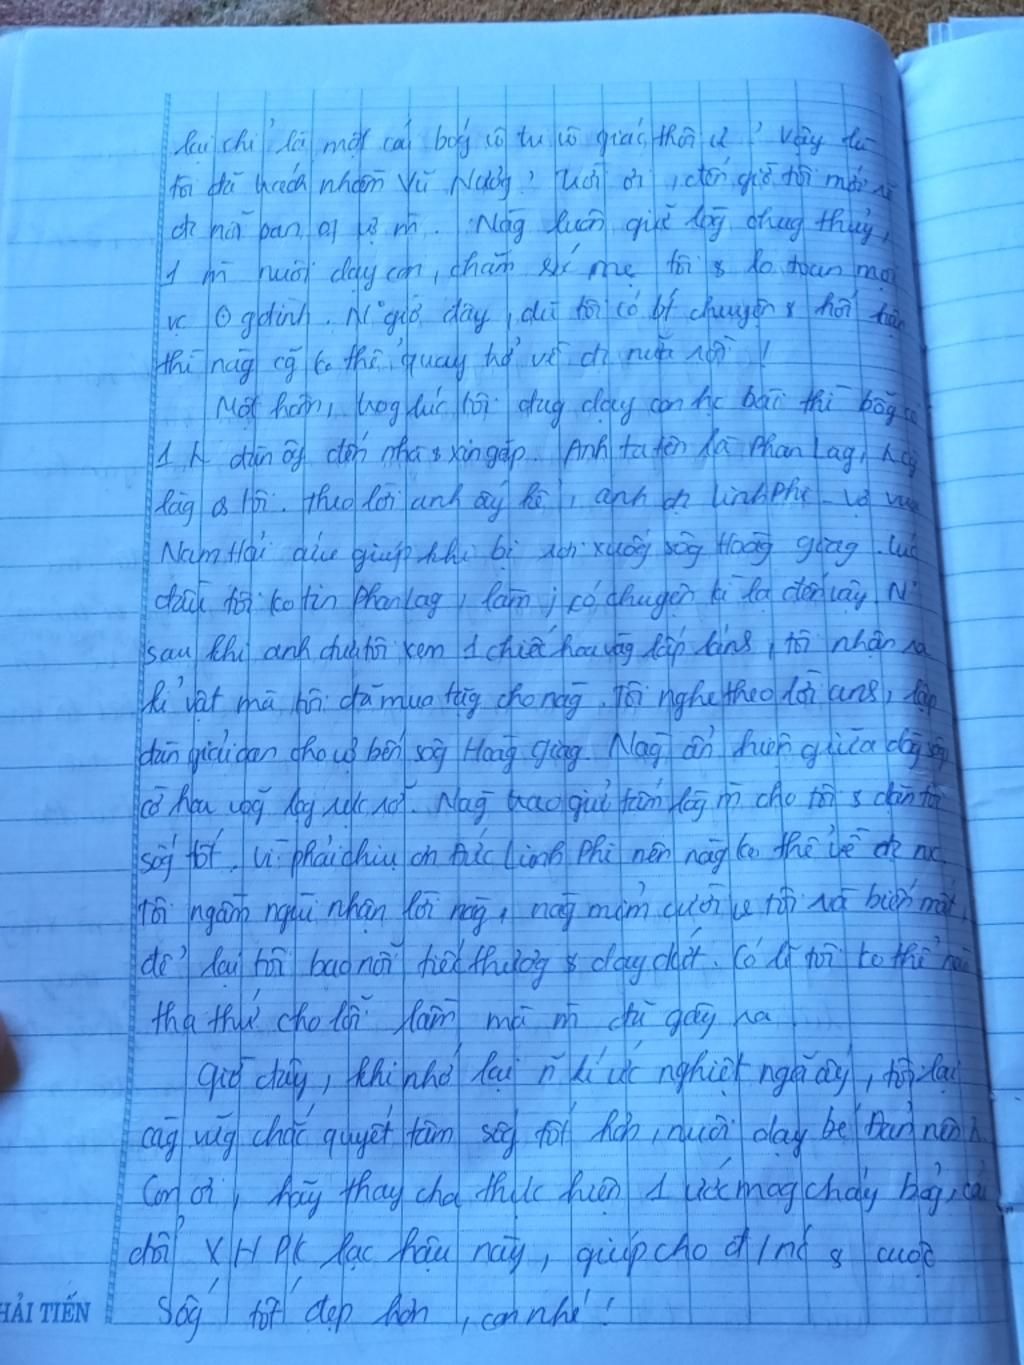 lại chỉ là một cái bóg vô tri vô giác thôi ư? Vậy là
tôi đã trách nhầm Vũ Nương? Trời ơi, đến giờ tôi mới
nỗi oan of vợ m̀. Nàg luôn giữ lòg chug thuỷ,
1 m̀ nuôi dạy con, chăm sóc mẹ tôi & lo toan mọi
vc gđình. N° giờ đây, dù tôi có bt chuyện & hối hận
thì nàg cg ko thể quay trở về đc nữa rồi!
Một hôm, trog lúc tôi đag dạy con hc bài thì bỗg có
1 ng đàn ôg đến nhà & xin gặp. Anh ta tên là Phan Lag, ng cùg
làg vs tôi. Theo lời anh ấy kể, anh đc Linh Phi - vợ vua
Nam Hải cứu giúp khi bị xuốg sôg Hoàg Giag. Lúc
đầu tôi ko tin Phan Lag, làm j có chuyện kì lạ đến vậy. N°
sau khi anh đưa tôi xem 1 chiếc hoa vàg lấp lánh, tôi nhận ra
kỉ vật mà tôi đã mua tặg cho nàg. Tôi nghe theo lời anh, lập
đàn giải oan cho vợ bên sôg Hoàg Giag. Nàg ẩn hiện giữa dòg sôg
cờ hoa võg lọg rực rỡ. Nàg trao gửi tấm lòg m̀ cho tôi & dặn tôi
sốg tốt. Vì phải chịu ơn đức Linh Phi nên nàg ko thể về đc nữa.
Tôi ngậm ngùi nhận lời nàg, nàg mỉm cười vs tôi và biến mất,
để lại tôi bao nỗi tiếc thươg & day dứt. Có lẽ tôi ko thể nào
tha thứ cho lỗi lầm mà m̀ đã gây ra.
Giờ đây, khi nhớ lại n̄ kí ức nghiệt ngã ấy, tôi lại
càg vữg chắc quyết tâm sốg tốt hơn, nuôi dạy bé Đản nên ng.
Con ơi, hãy thay cha thực hiện 1 ước mơ cháy bỏg, cải
đổi XHPK lạc hậu này, giúp cho đ/nc & cuộc
sốg tốt đẹp hơn, con nhé!
HẢI TIẾN